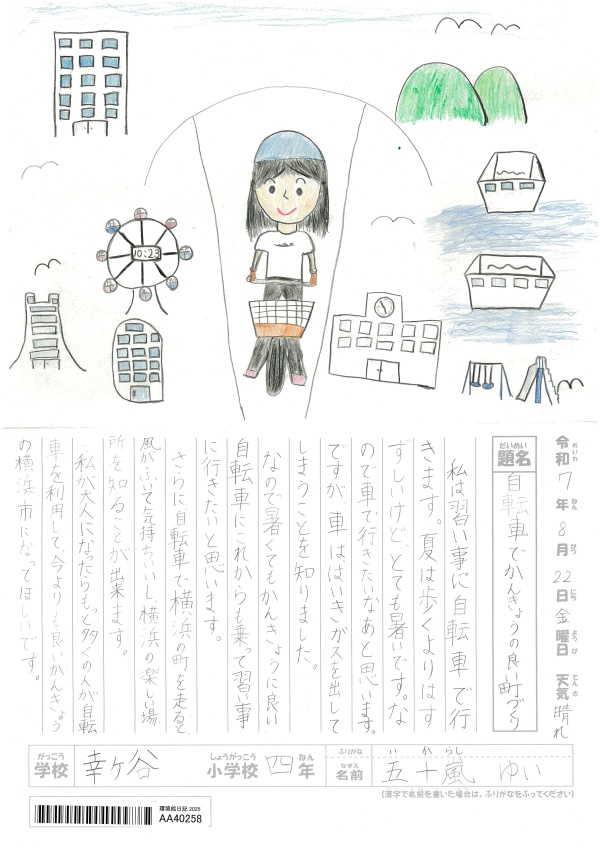 10:23
令和7年8月22日金曜日 天気晴れ
れいわ ねん がつ にち ようび てんき
題名 自転車でかんきょうの良い町づくり
だいめい
私は習い事に自転車で行
きます。夏は歩くよりはす
ずしいけど、とても暑いです。な
ので車で行きたいなあと思います。
ですが、車ははいきガスを出して
しまうことを知りました。
なので暑くてもかんきょうに良い
自転車にこれからも乗って習い事
に行きたいと思います。
さらに、自転車で横浜の町を走ると
風がふいて気持ちいいし、横浜の楽しい場
所を知ることが出来ます。
私が大人になったらもっと多くの人が自転
車を利用して、今よりも良いかんきょう
の横浜市になってほしいです。
がっこう しょうがっこう ねん ふりがな い か らし
学校 幸ヶ谷 小学校 四年 名前 五十嵐 ゆい
なまえ
(漢字で名前を書いた場合は、ふりがなをふってください)
環境絵日記 2025
AA40258